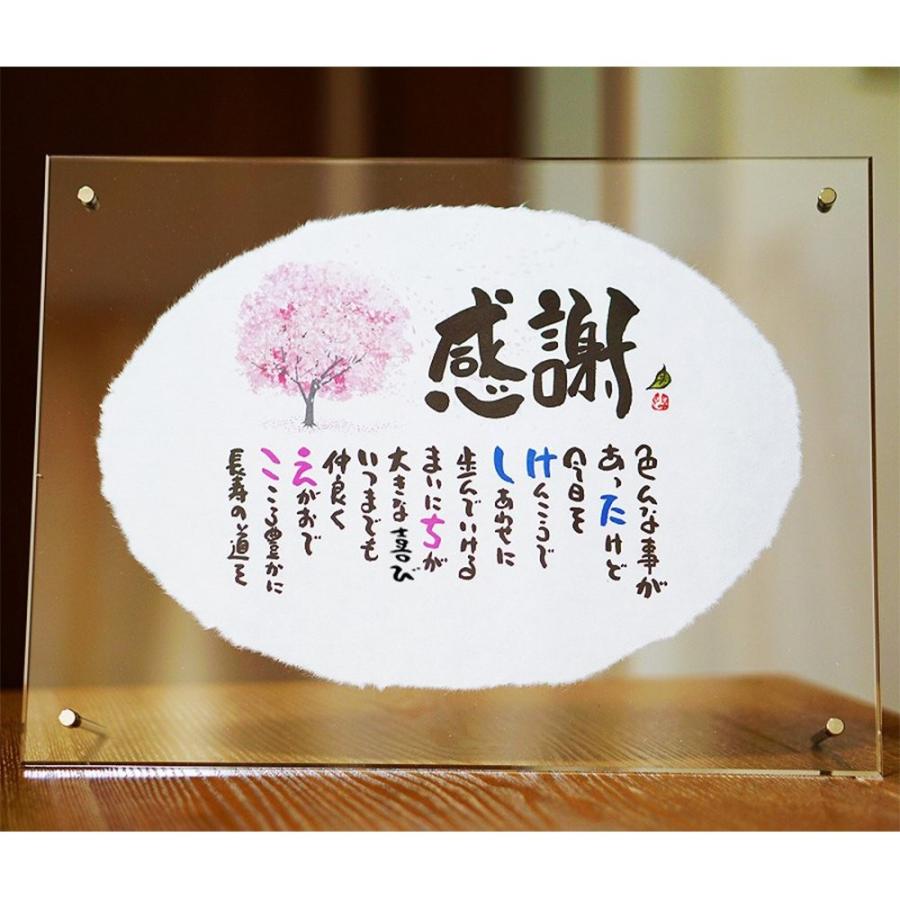 感謝
色んな事が
あったけど
今日を
けんこうで
しあわせに
歩んでいける
まいにちが
大きな喜び
いつまでも
仲良く
えがおで
こころ豊かに
長寿の道を